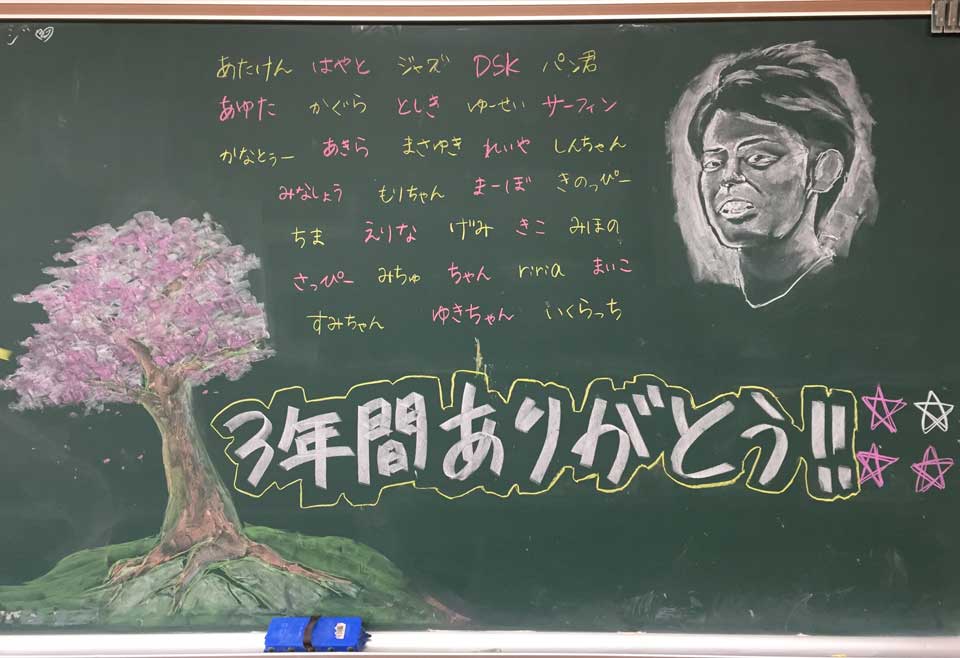 ジ♡
あたけん はやと ジャズ DSK パン君
あゆた かぐら としき ゆーせい サーフィン
かなとぅー あきら まさゆき れいや しんちゃん
みなしょう もりちゃん まーぼ きのっぴー
ちま えりな げみ きこ みほの
さっぴー みちゅ ちゃん riria まいこ
すみちゃん ゆきちゃん いくらっち
3年間ありがとう!!